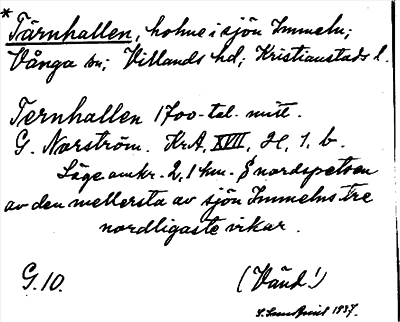 * Tärnhallen, holme i sjön Immeln;
Vånga sn; Villands hd; Kristianstads l.
Ternhallen 1700-tal. mitt.
G. Norström. KrA, XVII, H, 1. b.
Läge omkr. 2,1 km. S nordspetsen
av den mellersta av sjön Immelns tre
nordligaste vikar.
G. 10. (Vänd!)
1937.